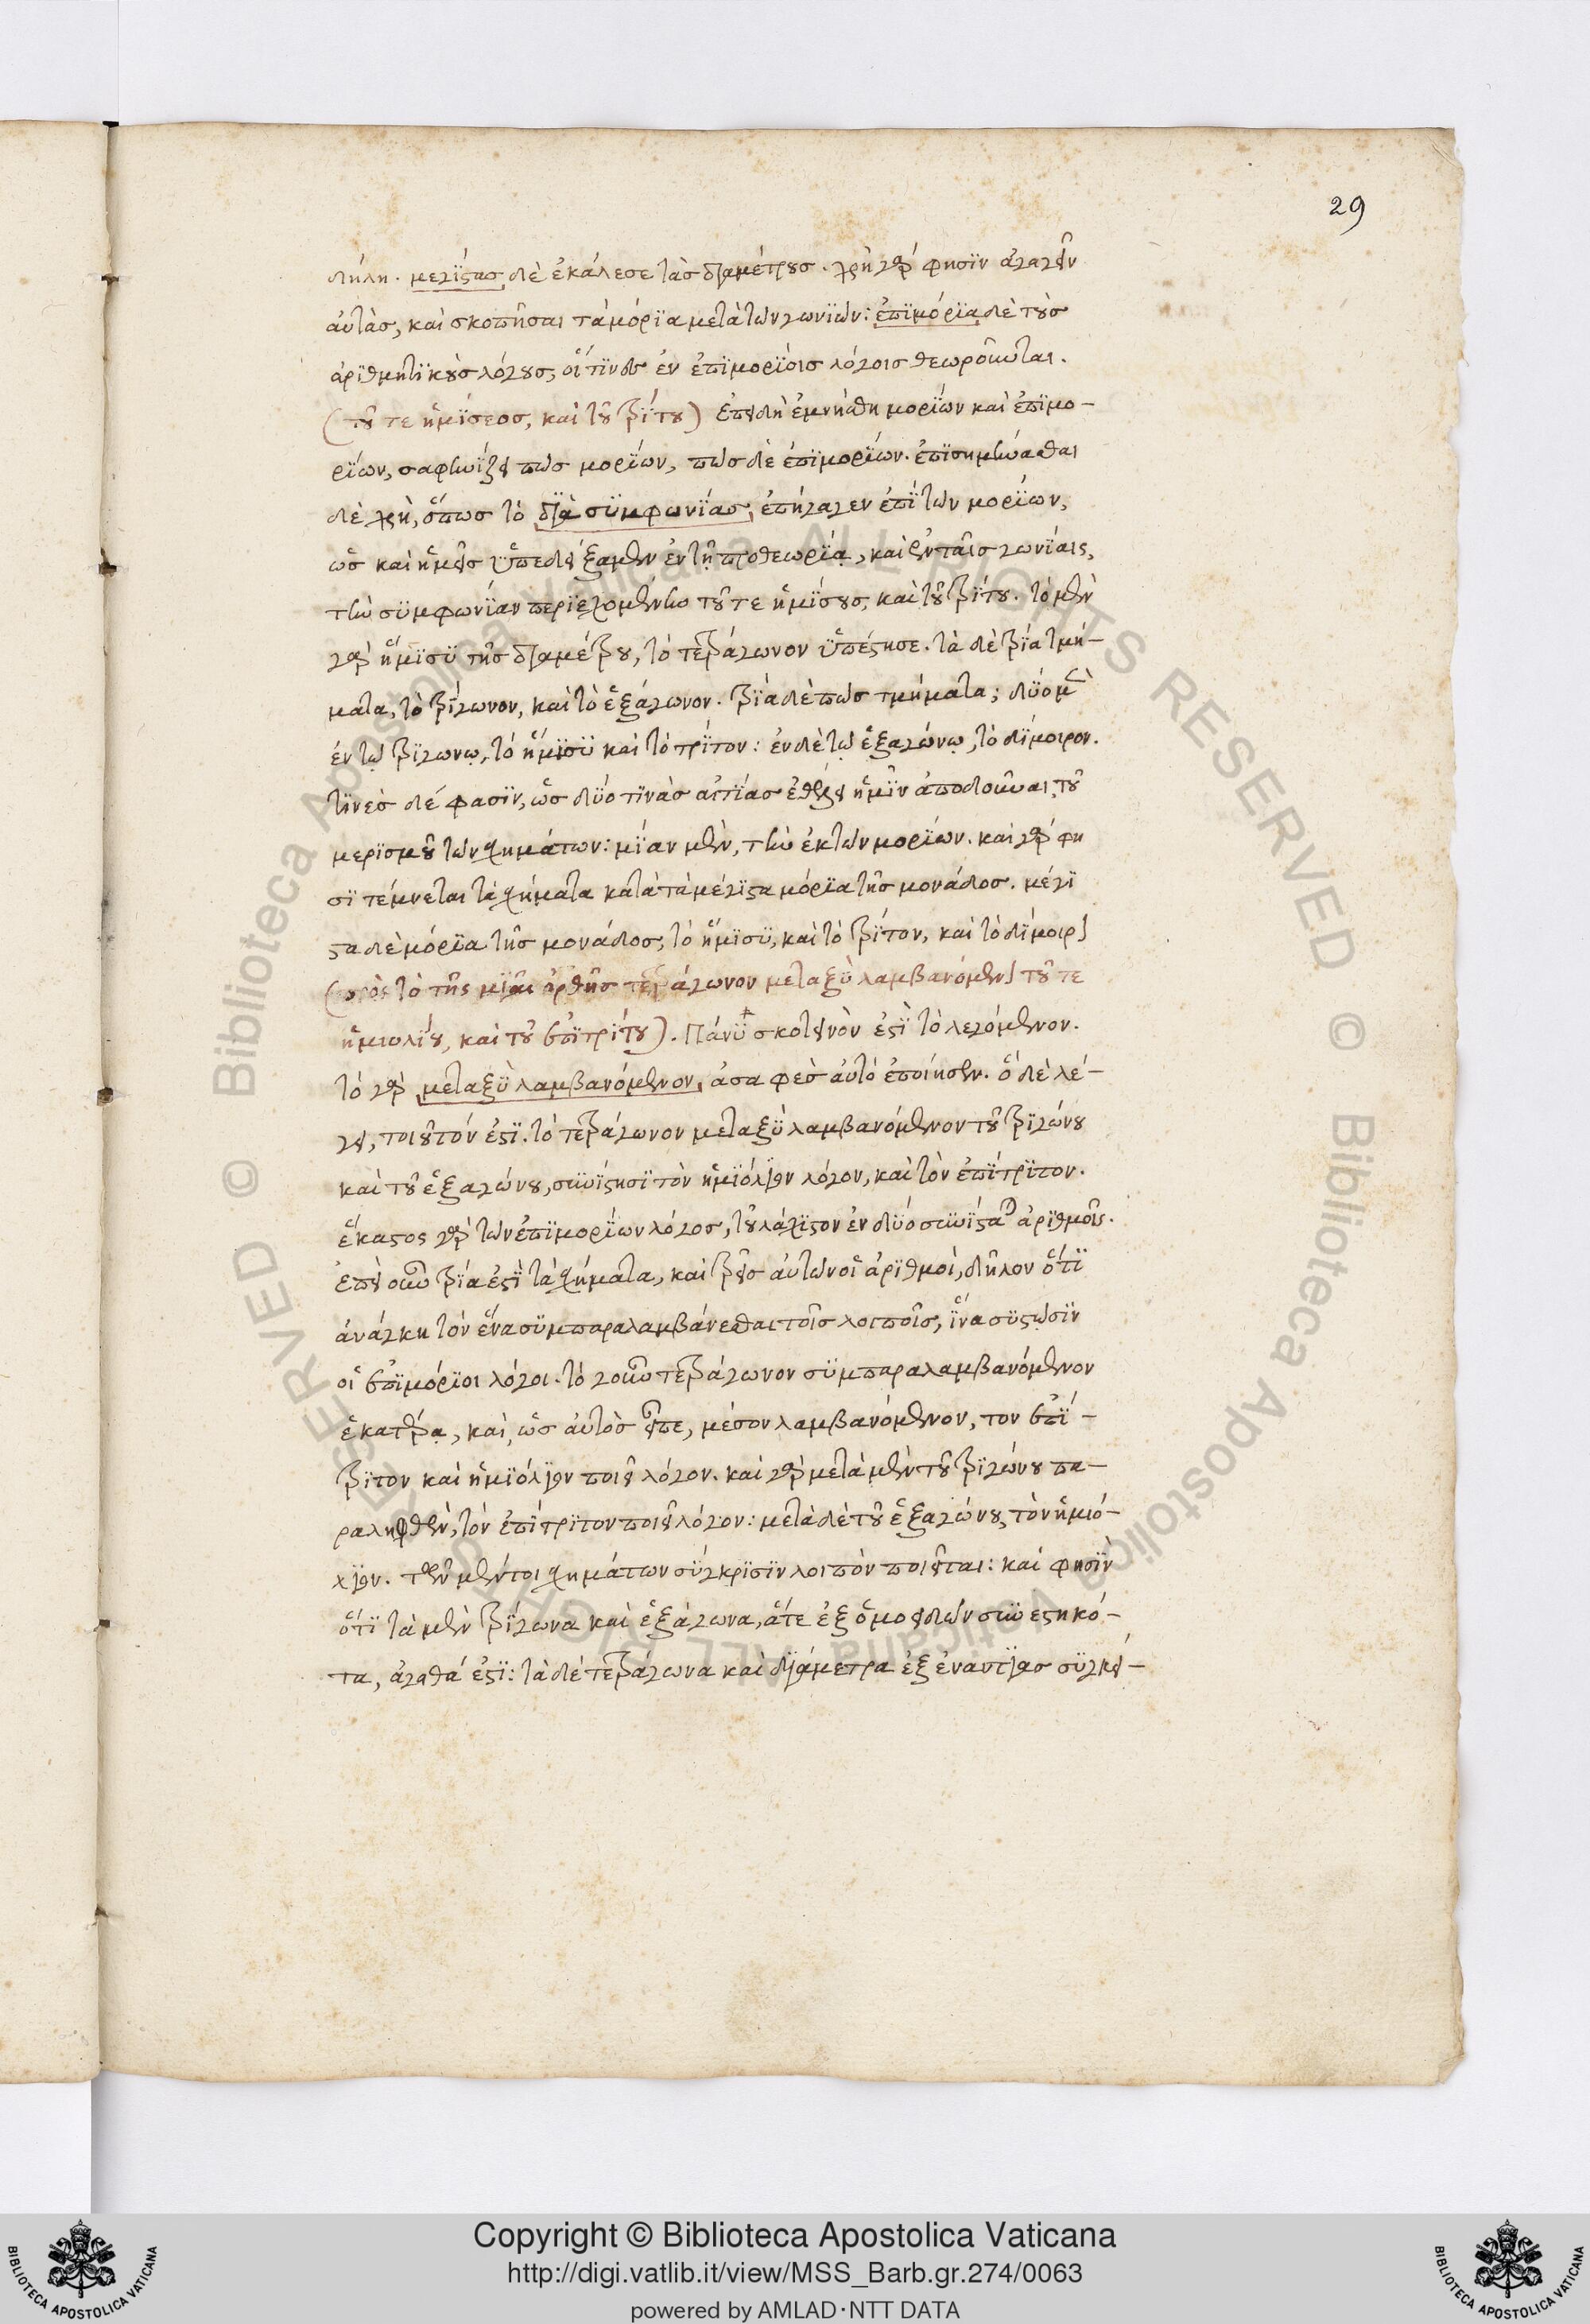 29
δήλη. μεγίςας δὲ ἐκάλεσε τὰς διαμέτρους. χρὴ γάρ φησϊν ἀγαγεῖν
αὐτὰς, καὶ σκοπῆσαι τὰ μόρϊα μετὰ τῶν γωνϊῶν: ἐπϊμόρϊα δὲ τοὺς
ἀρϊθμητϊκοὺς λόγους, οἵτϊνες ἐν ἐπϊμορϊοις λόγοις θεωροῦνται.
(τοῦ τε ἡμϊσεος, καὶ τοῦ τρίτου) ἐπειδὴ ἐμνήσθη μορϊων καὶ ἐπϊμο-
ρϊων, σαφηνϊζει πῶς μορϊων, πῶς δὲ ἐπϊμορϊων. ἐπϊσημήνασθαι
δὲ χρὴ, ὅπως τὸ διὰ συμφωνϊας, ἐπήγαγεν ἐπὶ τῶν μορϊων,
ὡς καὶ ἡμεῖς ὑπεδείξαμεν ἐν τῇ προθεωρϊᾳ, καὶ ἐν ταῖς γωνϊαις,
τὴν συμφωνϊαν περϊεχομένην τοῦ τε ἡμϊσους, καὶ τοῦ τρίτου. τὸ μὲν
γὰρ ἥμϊσυ τῆς διαμέτρου, τὸ τετράγωνον ὑπέςησε. τὰ δὲ τρία τμή-
ματα, τὸ τρίγωνον, καὶ τὸ ἑξάγωνον. τρία δὲ πῶς τμήματα; δύο μὲν
ἐν τῷ τριγώνῳ, τὸ ἥμϊσυ καὶ τὸ τρϊτον: ἐν δὲ τῷ ἑξαγώνῳ, τὸ δϊμοιρον.
τϊνὲς δέ φασϊν, ὡς δύο τϊνὰς αἰτϊας ἔθει ἡμῖν ἀποδοῦναι, τοῦ
μερϊσμοῦ τῶν σχημάτων: μϊαν μὲν, τὴν ἐκ τῶν μορϊων. καὶ γάρ φη
σϊ τέμνεται τὰ σχήματα κατὰ τὰ μέγϊςα μόρϊα τῆς μονάδος. μέγϊ
ςα δὲ μόρϊα τῆς μονάδος, τὸ ἥμϊσυ, καὶ τὸ τρίτον, καὶ τὸ δϊμοιρον
(πρὸς τὸ τῆς μϊᾶς ὀρθῆς τετράγωνον μεταξὺ λαμβανόμενον τοῦ τε
ἡμιολϊου, καὶ τοῦ ἐπϊτρίτου). Πάνυ σκοτεινὸν ἐςὶ τὸ λεγόμενον.
τὸ γὰρ μεταξὺ λαμβανόμενον, ἀσαφὲς αὐτὸ ἐποίησεν. ὃ δὲ λέ-
γει, τοιοῦτόν ἐςϊ. τὸ τετράγωνον μεταξὺ λαμβανόμενον τοῦ τριγώνου
καὶ τοῦ ἑξαγώνου, συνϊςησϊ τὸν ἡμϊόλϊον λόγον, καὶ τὸν ἐπϊτρϊτον.
ἕκαςος γὰρ τῶν ἐπϊμορϊων λόγος, τοὐλάχϊςον ἐν δυσὶ συνίςαται ἀρϊθμοῖς.
ἐπεὶ οὖν τρία ἐςὶ τὰ σχήματα, καὶ τρεῖς αὐτῶν οἱ ἀρϊθμοὶ, δῆλον ὅτϊ
ἀνάγκη τὸν ἕνα συμπαραλαμβάνεσθαι τοῖς λοιποῖς, ἵνα συςῶσϊν
οἱ ἐπϊμόρϊοι λόγοι. τὸ γοῦν τετράγωνον συμπαραλαμβανόμενον
ἑκατέρᾳ, καὶ, ὡς αὐτὸς εἶπε, μέσον λαμβανόμενον, τὸν ἐπϊ-
τρϊτον καὶ ἡμϊόλϊον ποιεῖ λόγον. καὶ γὰρ μετὰ μὲν τοῦ τριγώνου πα-
ραληφθὲν, τὸν ἐπϊτρϊτον ποιεῖ λόγον: μετὰ δὲ τοῦ ἑξαγώνου, τὸν ἡμιό-
λϊον. τῶν μέντοι σχημάτων σύγκρϊσϊν λοιπὸν ποιεῖται: καὶ φησϊν
ὅτϊ τὰ μὲν τρίγωνα καὶ ἑξάγωνα, ἅτε ἐξ ὁμοειδῶν συνεςηκό-
τα, ἀγαθά ἐςϊ: τὰ δὲ τετράγωνα καὶ διάμετρα ἐξ ἐναντϊας συγκει-
Copyright © Biblioteca Apostolica Vaticana
http://digi.vatlib.it/view/MSS_Barb.gr.274/0063
powered by AMLAD·NTT DATA